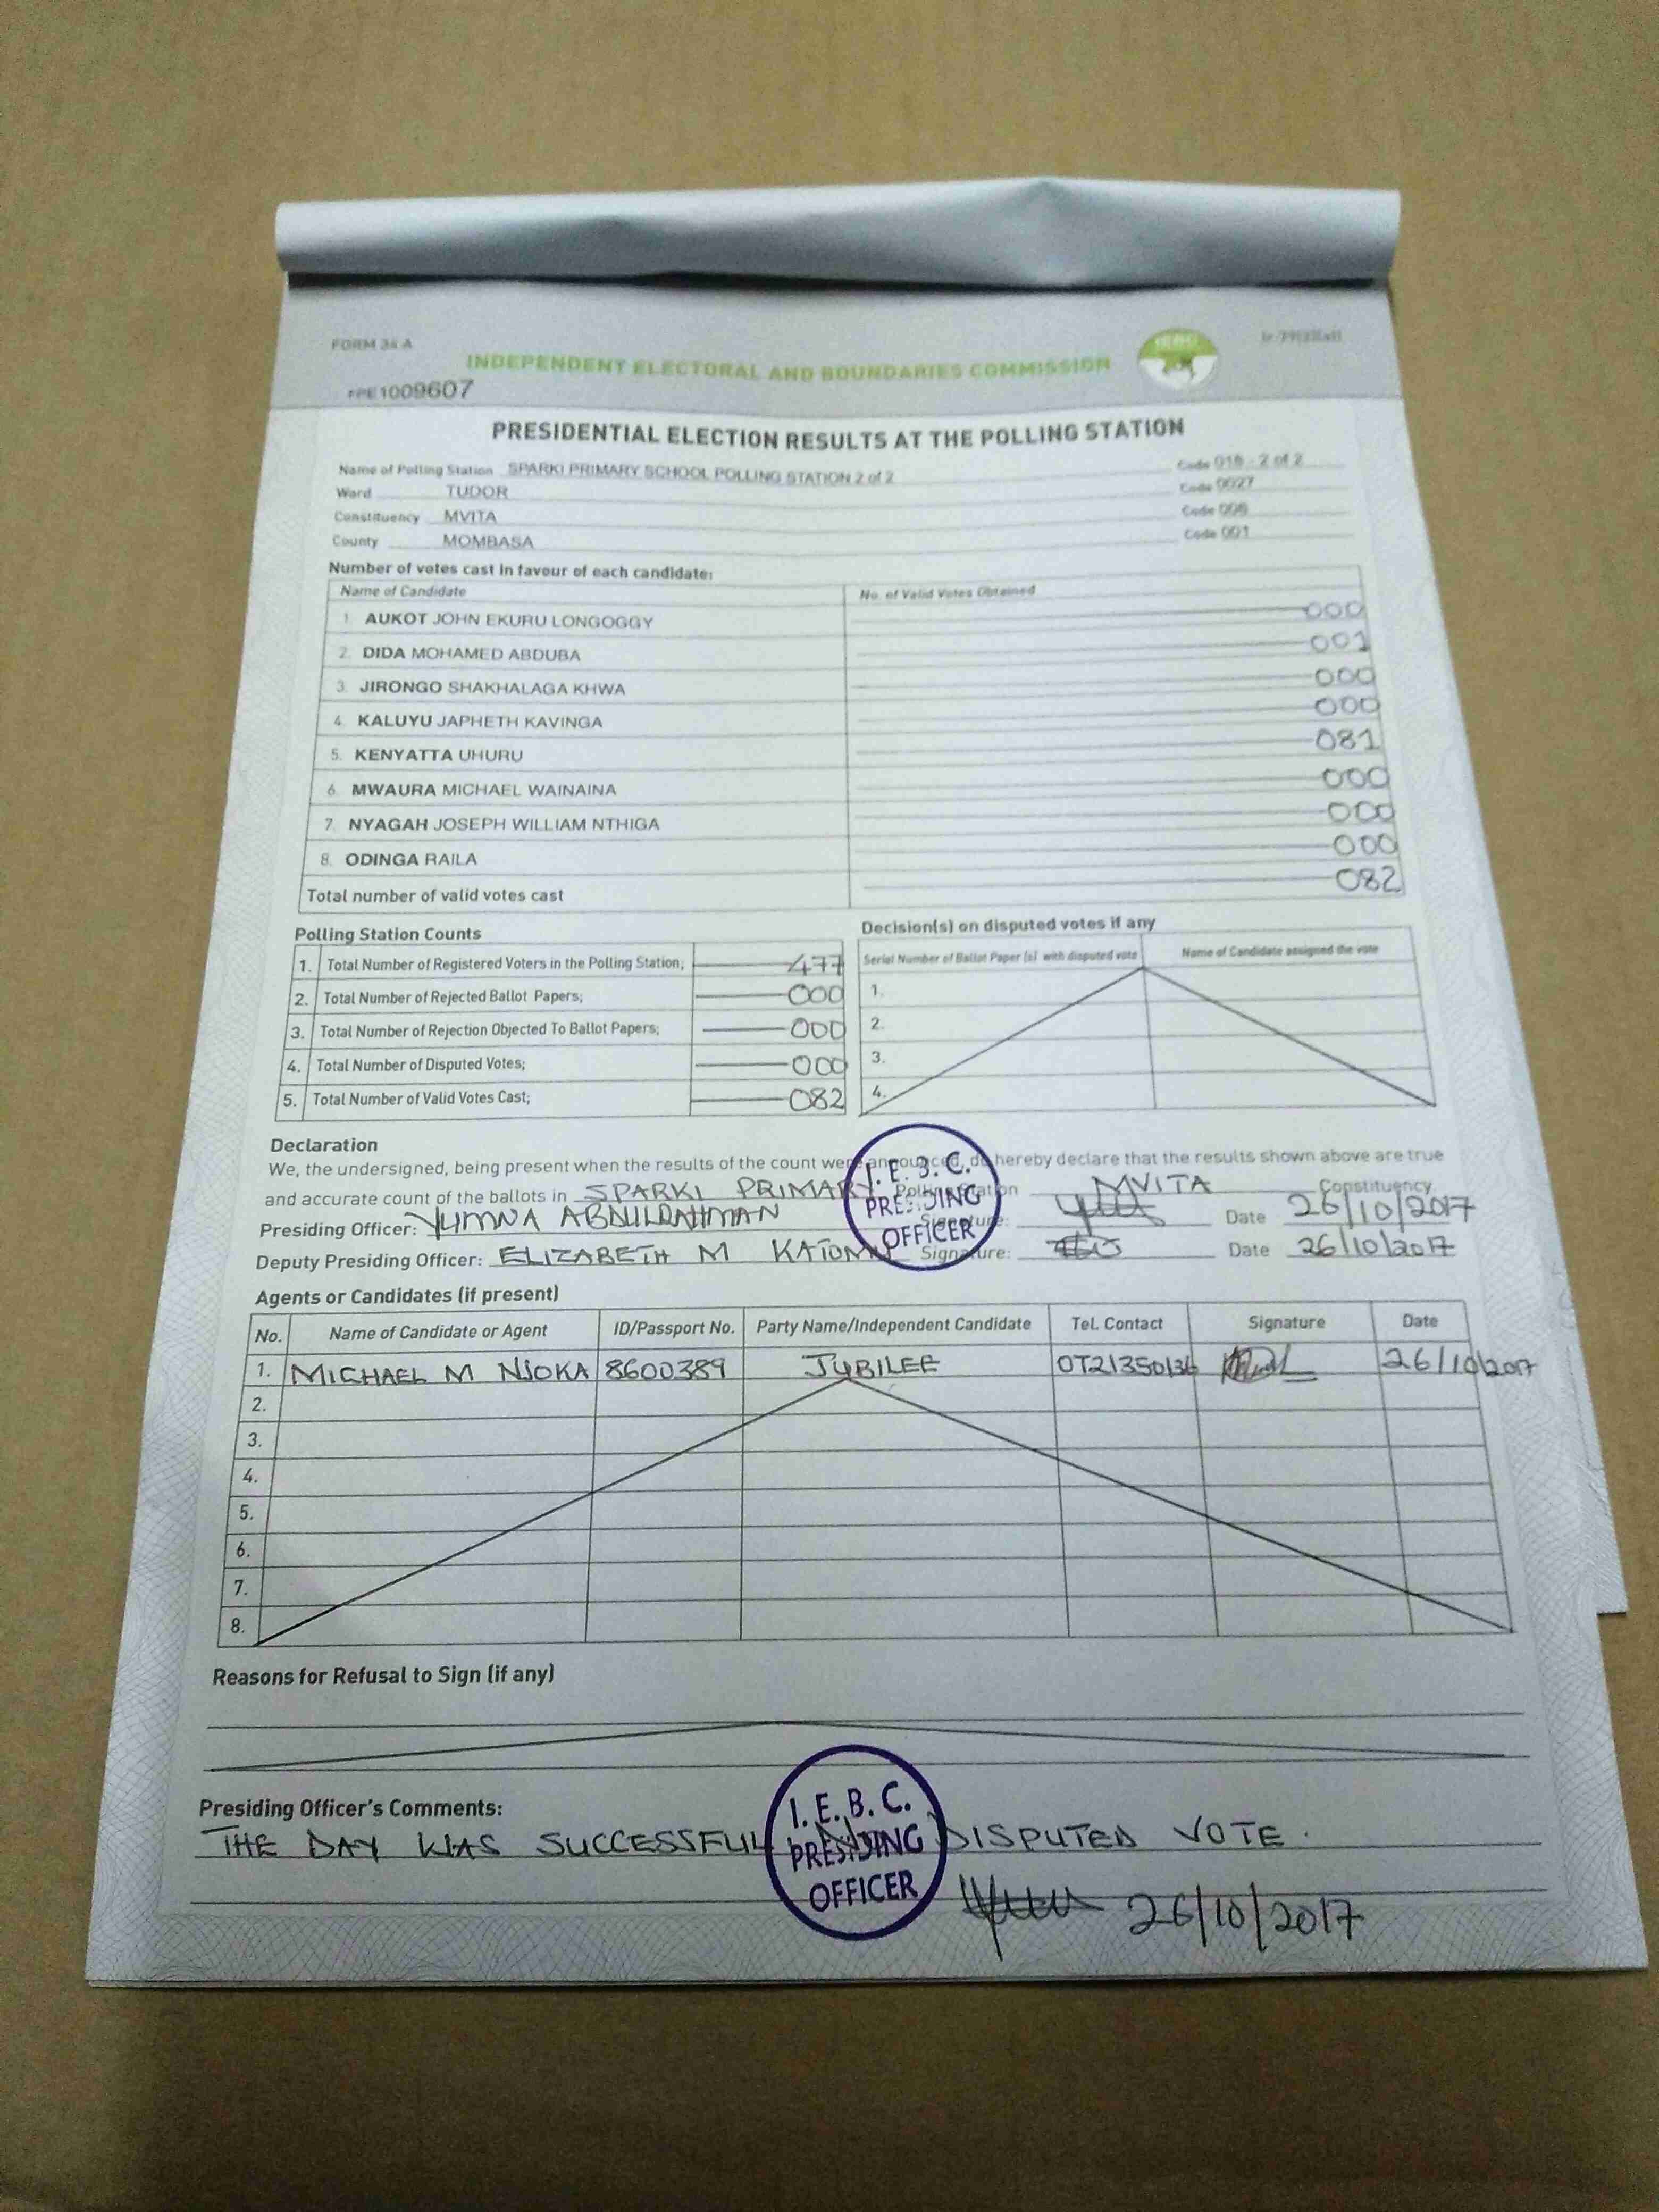 FORM 34 A
INDEPENDENT ELECTORAL AND BOUNDARIES COMMISSION
1009607
PRESIDENTIAL ELECTION RESULTS AT THE POLLING STATION
Name of Polling Station SPARKI PRIMARY SCHOOL POLLING STATION 2 of 2 Code 018 - 2 of 2
Ward TUDOR Code 0027
Constituency MVITA Code 006
County MOMBASA Code 001
Number of votes cast in favour of each candidate:
Name of Candidate No. of Valid Votes Obtained
1. AUKOT JOHN EKURU LONGOGGY 000
2. DIDA MOHAMED ABDUBA 001
3. JIRONGO SHAKHALAGA KHWA 000
4. KALUYU JAPHETH KAVINGA 000
5. KENYATTA UHURU 081
6. MWAURA MICHAEL WAINAINA 000
7. NYAGAH JOSEPH WILLIAM NTHIGA 000
8. ODINGA RAILA 000
Total number of valid votes cast 082
Polling Station Counts
1. Total Number of Registered Voters in the Polling Station; 477
2. Total Number of Rejected Ballot Papers; 000
3. Total Number of Rejection Objected To Ballot Papers; 000
4. Total Number of Disputed Votes; 000
5. Total Number of Valid Votes Cast; 082
Decision(s) on disputed votes if any
Serial Number of Ballot Paper (s) with disputed vote Name of Candidate assigned the vote
1.
2.
3.
4.
Declaration
We, the undersigned, being present when the results of the count were announced, do hereby declare that the results shown above are true
and accurate count of the ballots in SPARKI PRIMARY Polling Station MVITA Constituency
Presiding Officer: YUMNA ABDULRAHMAN Signature: Date 26/10/2017
Deputy Presiding Officer: ELIZABETH M Signature: Date 26/10/2017
I. E. B. C.
PRESIDING
OFFICER
Agents or Candidates (if present)
No. Name of Candidate or Agent ID/Passport No. Party Name/Independent Candidate Tel. Contact Signature Date
1. MICHAEL M NJOKA 8600389 JUBILEE 0721350136 26/10/2017
2.
3.
4.
5.
6.
7.
8.
Reasons for Refusal to Sign (if any)
Presiding Officer's Comments:
THE DAY WAS SUCCESSFUL DISPUTED VOTE.
I. E. B. C.
PRESIDING
OFFICER
26/10/2017